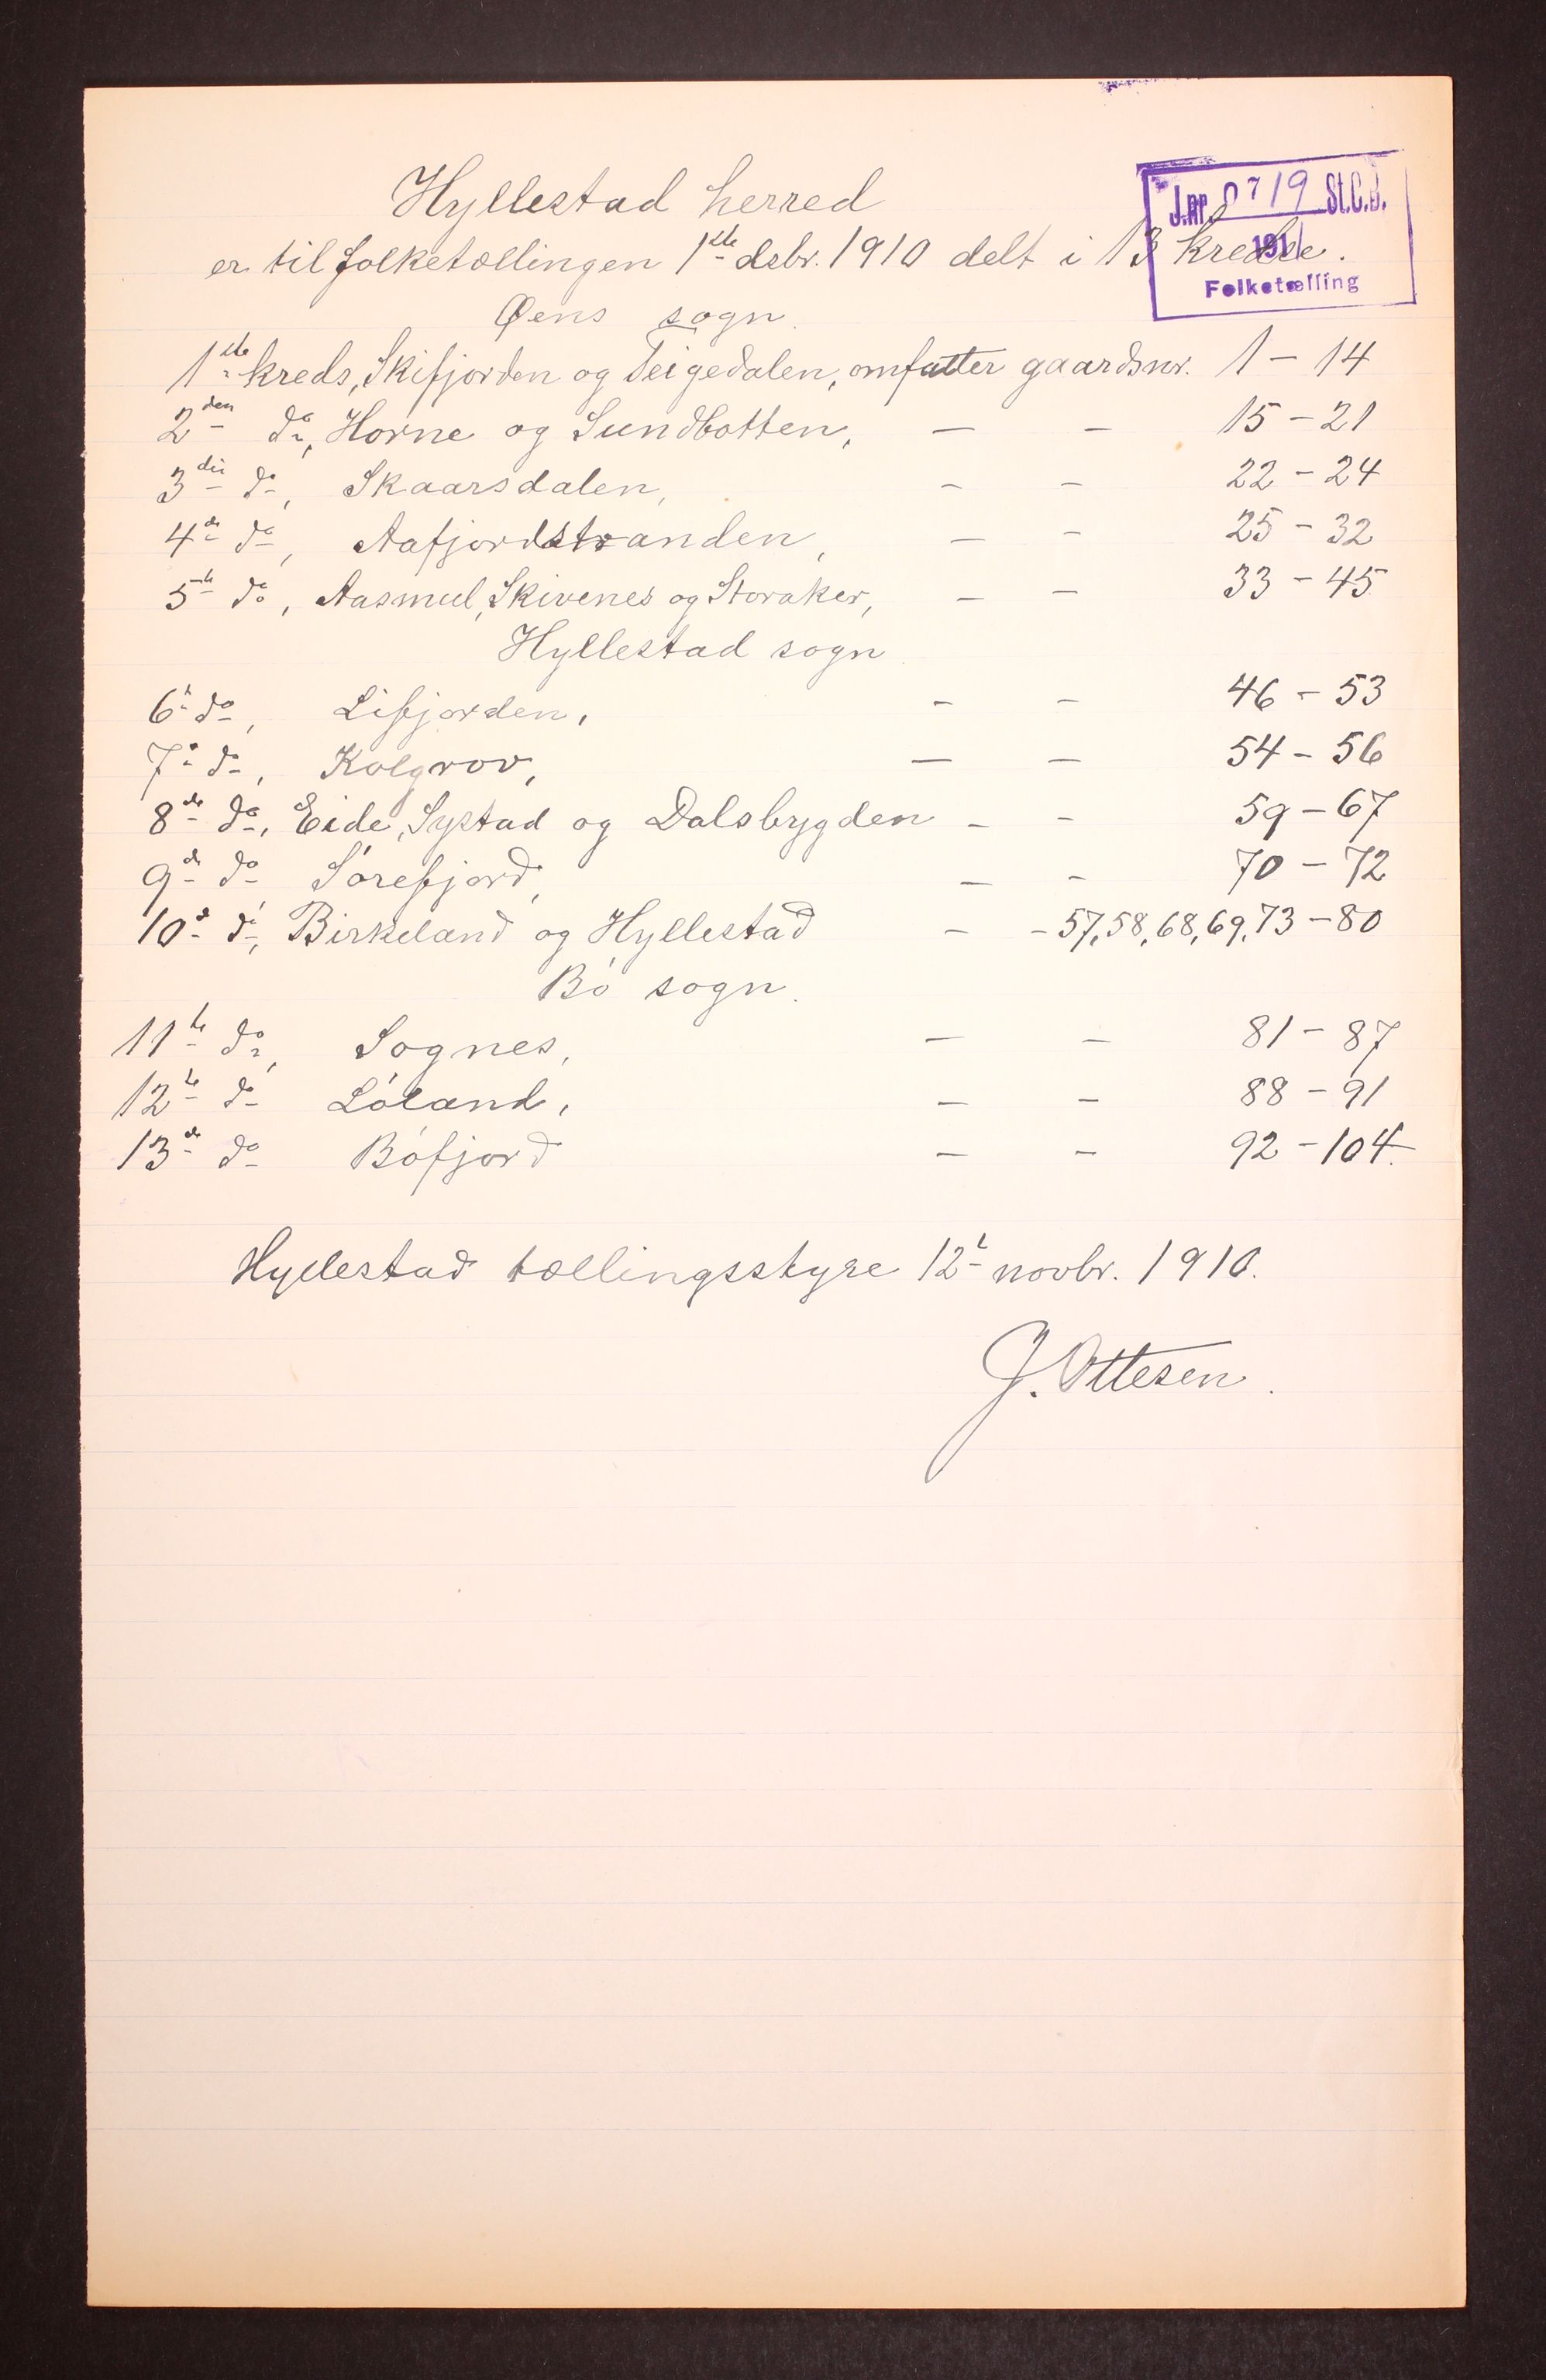 Hyllestad herred
J.nr. 0719 St.C.B.
er til folketællingen 1ste desbr. 1910 delt i 13 kredse.
1911
Folketælling
Øens sogn.
1ste kreds, Skifjorden og Teigedalen, omfatter gaardsnr. 1 - 14
2den do, Horne og Sundbotten, - - 15 - 21
3die do, Skaarsdalen, - - 22 - 24
4de do, Aafjordstranden, - - 25 - 32
5te do, Aasmul, Skivenes og Storaker, - - 33 - 45
Hyllestad sogn.
6te do, Lifjorden, - - 46 - 53
7de do, Kolgrov, - - 54 - 56
8de do, Eide, Systad og Dalsbygden - - 59 - 67
9de do Sørefjord, - - 70 - 72
10de do, Birkeland og Hyllestad - - 57, 58, 68, 69, 73 - 80
Bø sogn.
11te do, Sognes, - - 81 - 87
12te do Løland, - - 88 - 91
13de do Bøfjord - - 92 - 104.
Hyllestad tællingsstyre 12te novbr. 1910.
J. Ottesen.